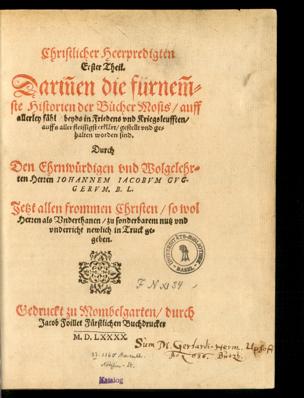 Christlicher Heerpredigten
Erster Theil.
Darin̄en die fürnem̄-
ste Historien der Bücher Mosis / auff
allerley fähl beyds in Friedens vnd Kriegsleufften /
auffs aller fleissigst erklärt / gestellt vnd ge-
halten worden sind.
Durch
Den Ehrnwürdigen vnd Wolgelehr-
ten Herren IOHANNEM IACOBVM GVG-
GERVM, B. L.
Jetzt allen frommen Christen / so wol
Herren als Vnderthanen / zu sonderbarem nutz vnd
vnderricht newlich in Truck ge-
geben.
F N XI 34
Gedruckt zu Mömbelgarten / durch
Jacob Foillet Fürstlichen Buchdrucker
M. D. LXXXX.
Sum M. Gerhardi
Katalog